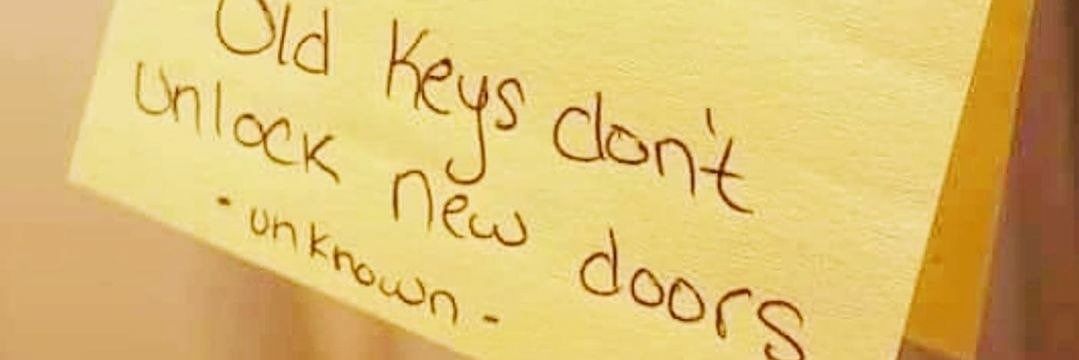 Old Keys don't
Unlock new doors
- unknown -